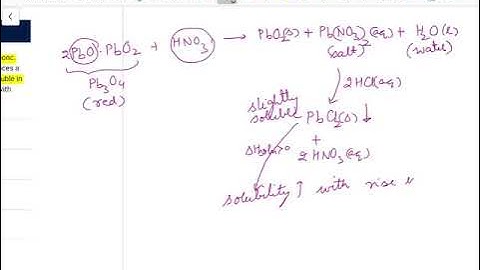 conc.
ces a
uble in
with
2PbO·PbO2 + HNO3 → PbO2(s) + Pb(NO3)2 (aq) + H2O(l)
(salt) (water)
Pb3O4
(red)
2HCl(aq)
slightly
soluble
PbCl2(s) ↓
+
2HNO3(aq)
solubility ↑ with rise